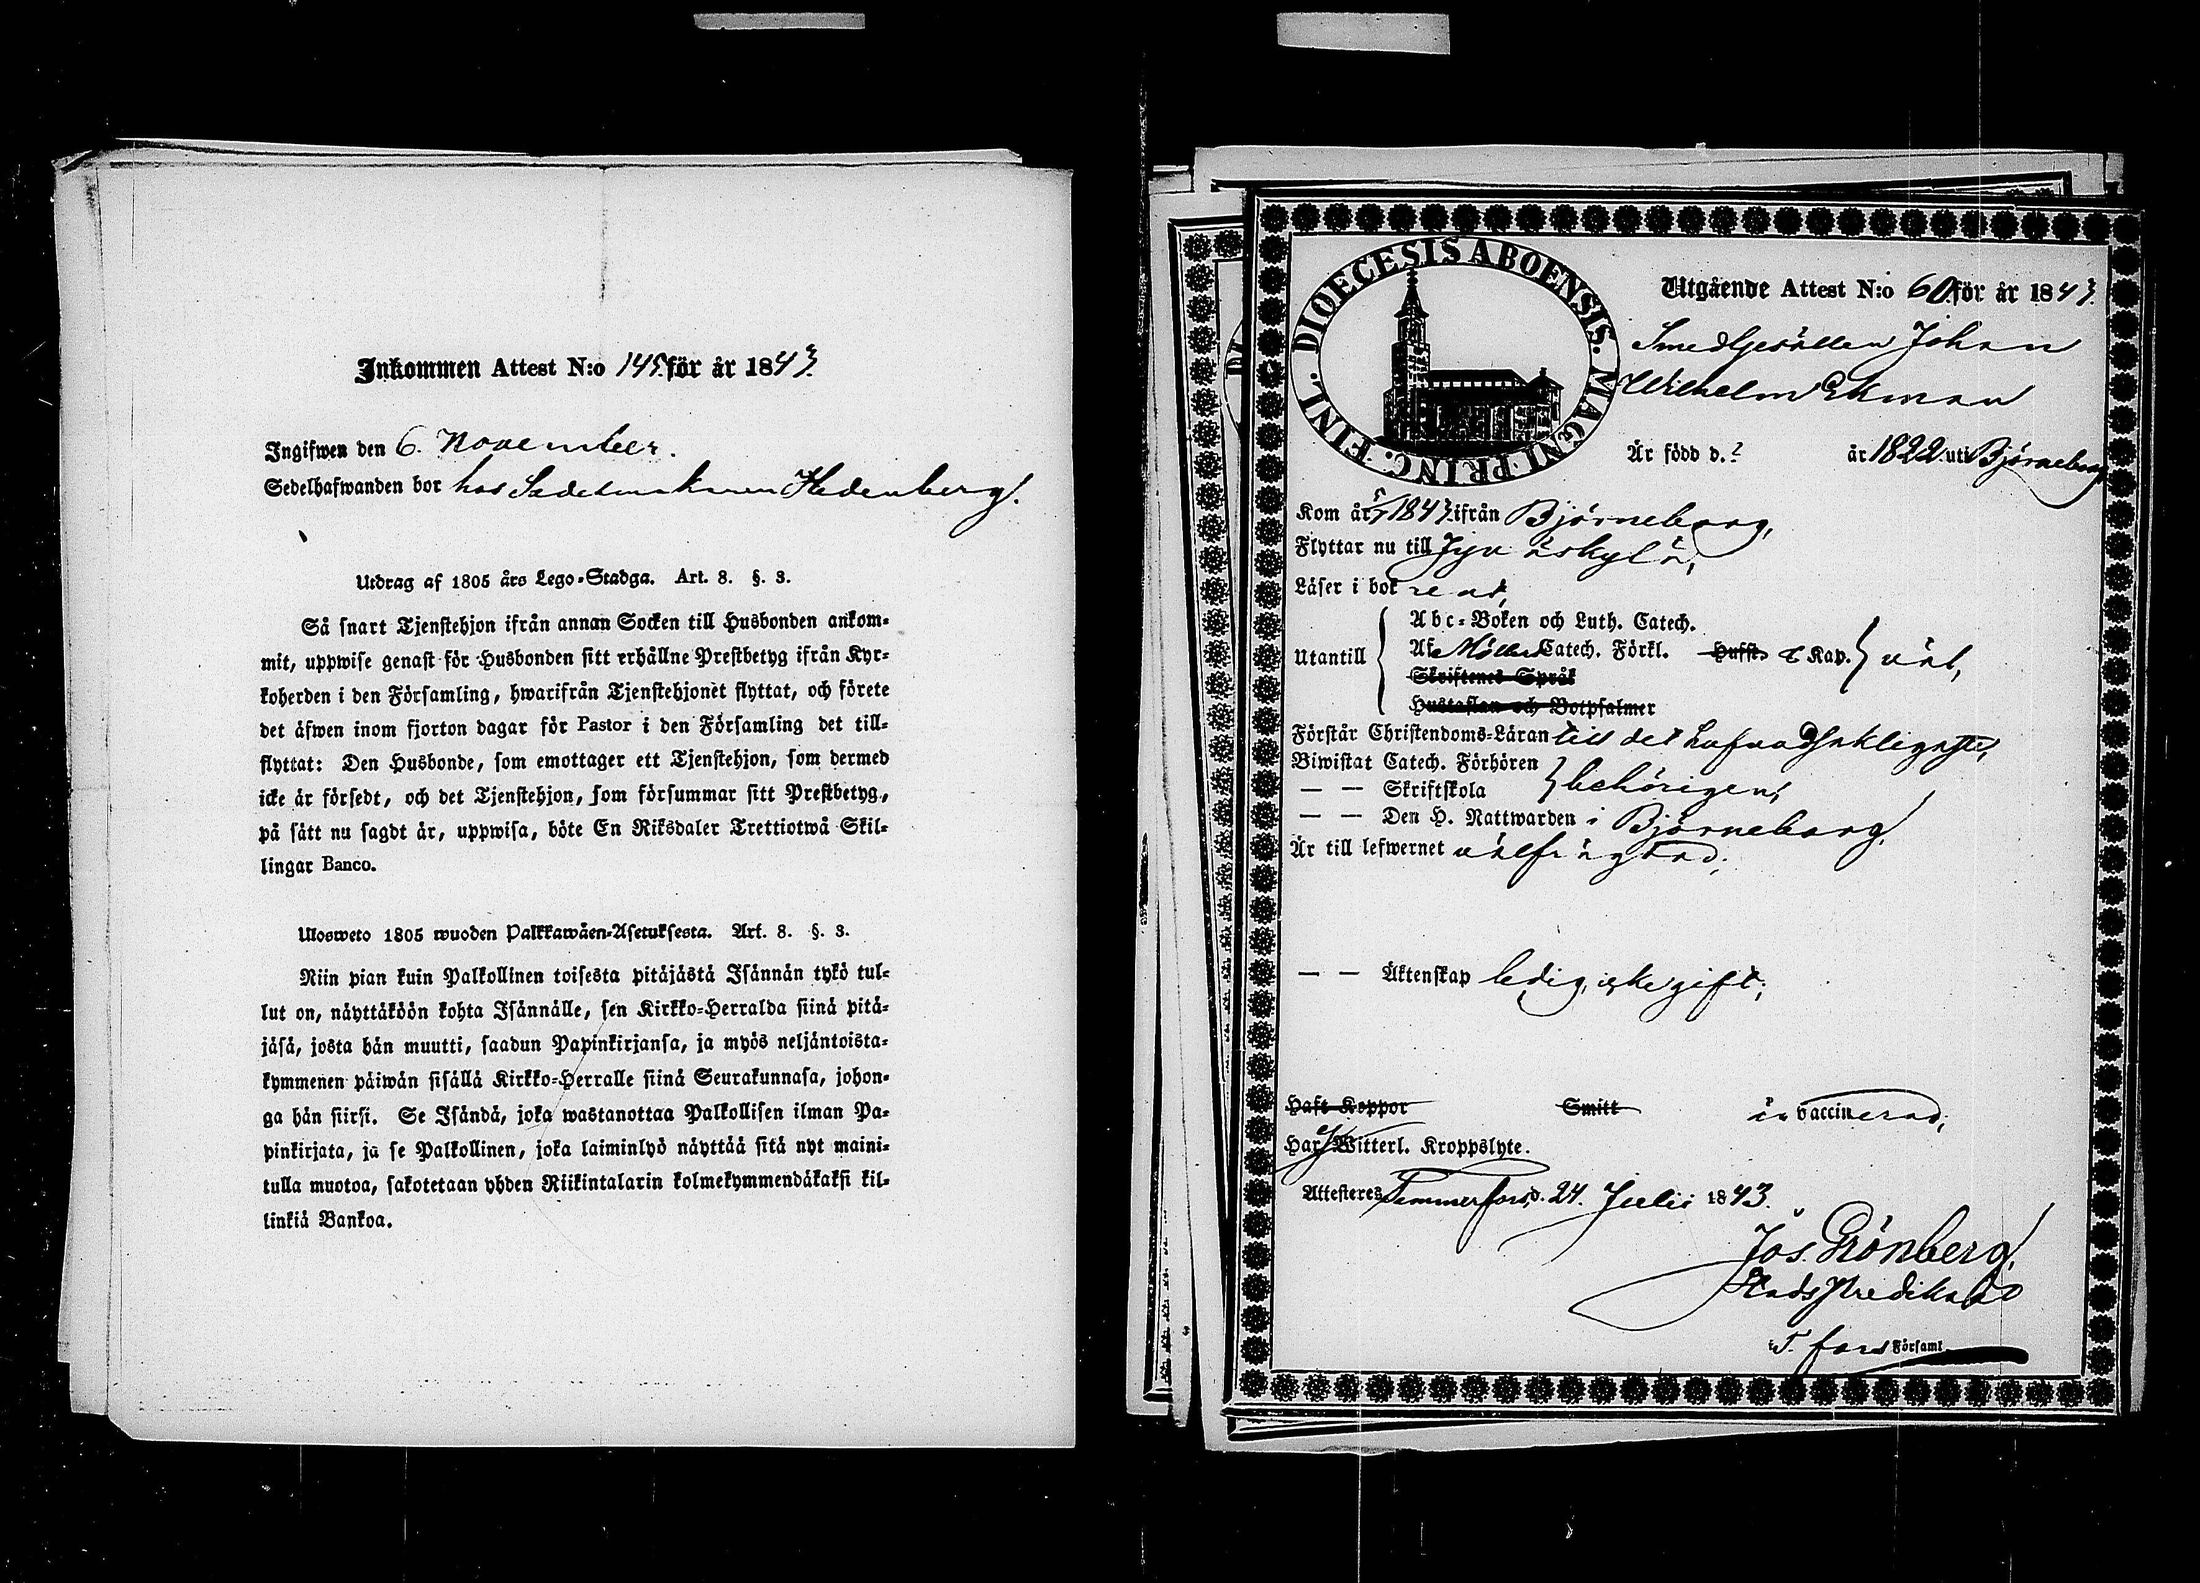 Inkommen Attest N:o 145. för år 1843.
Ingifwen den 6. November.
Sedelhafwanden bor hos Sadelmakaren Hedenberg.
Utdrag af 1805 års Lego-Stadga. Art. 8. §. 3.
Så snart Tjenstehjon ifrån annan Socken till Husbonden ankom-
mit, uppwise genast för Husbonden sitt erhållne Prestbetyg ifrån Kyr-
koherden i den Församling, hwarifrån Tjenstehjonet flyttat, och förete
det äfwen inom fjorton dagar för Pastor i den Församling det till-
flyttat: Den Husbonde, som emottager ett Tjenstehjon, som dermed
icke är försedt, och det Tjenstehjon, som försummar sitt Prestbetyg,
på sätt nu sagdt är, uppwisa, böte En Riksdaler Trettiotwå Skil-
lingar Banco.
Ulosweto 1805 wuoden Palkkawäen-Asetuksesta. Art. 8. §. 3.
Niin pian kuin Palkollinen toisesta pitäjästä Isännän tykö tul-
lut on, näyttäköön kohta Isännälle, sen Kirkko-Herralda siinä pitä-
jäsä, josta hän muutti, saadun Papinkirjansa, ja myös neljäntoista-
kymmenen päiwän sisällä Kirkko-Herralle siinä Seurakunnasa, johon-
ga hän siirsi. Se Isändä, joka wastanottaa Palkollisen ilman Pa-
pinkirjata, ja se Palkollinen, joka laiminlyö näyttää sitä nyt maini-
tulla muotoa, sakotetaan yhden Riikintalarin kolmekymmendäkaksi kil-
linkiä Bankoa.
DIOECESIS ABOENSIS. MAGNI PRINC. FINL.
Utgående Attest N:o 60. för år 1843.
Smedgesällen Johan
Wilhelm Ekman
Är född d. ? år 1822 uti Björneborg
Kom år 1843 ifrån Björneborg,
Flyttar nu till Jyväskylä,
Läser i bok rent,
Utantill
Abc-Boken och Luth. Catech.
Af Möllers Catech. Förkl. Hufst. 6 Kap. väl,
Skriftenes Språk
Hustaflan och Botpsalmer
Förstår Christendoms-Läran till det hufvudsakligaste,
Biwistat Catech. Förhören
— — Skriftskola behörigen,
— — Den H. Nattwarden i Björneborg,
Är till lefwernet välfrägdad,
— — Äktenskap ledig, icke gift,
Haft Koppor Smitt är vaccinerad,
Har ej Witterl. Kroppslyte.
Attesteres Tammerfors d. 24. Julii 1843.
Jos. Grönberg,
Stads Predikant
i T. fors Församl.